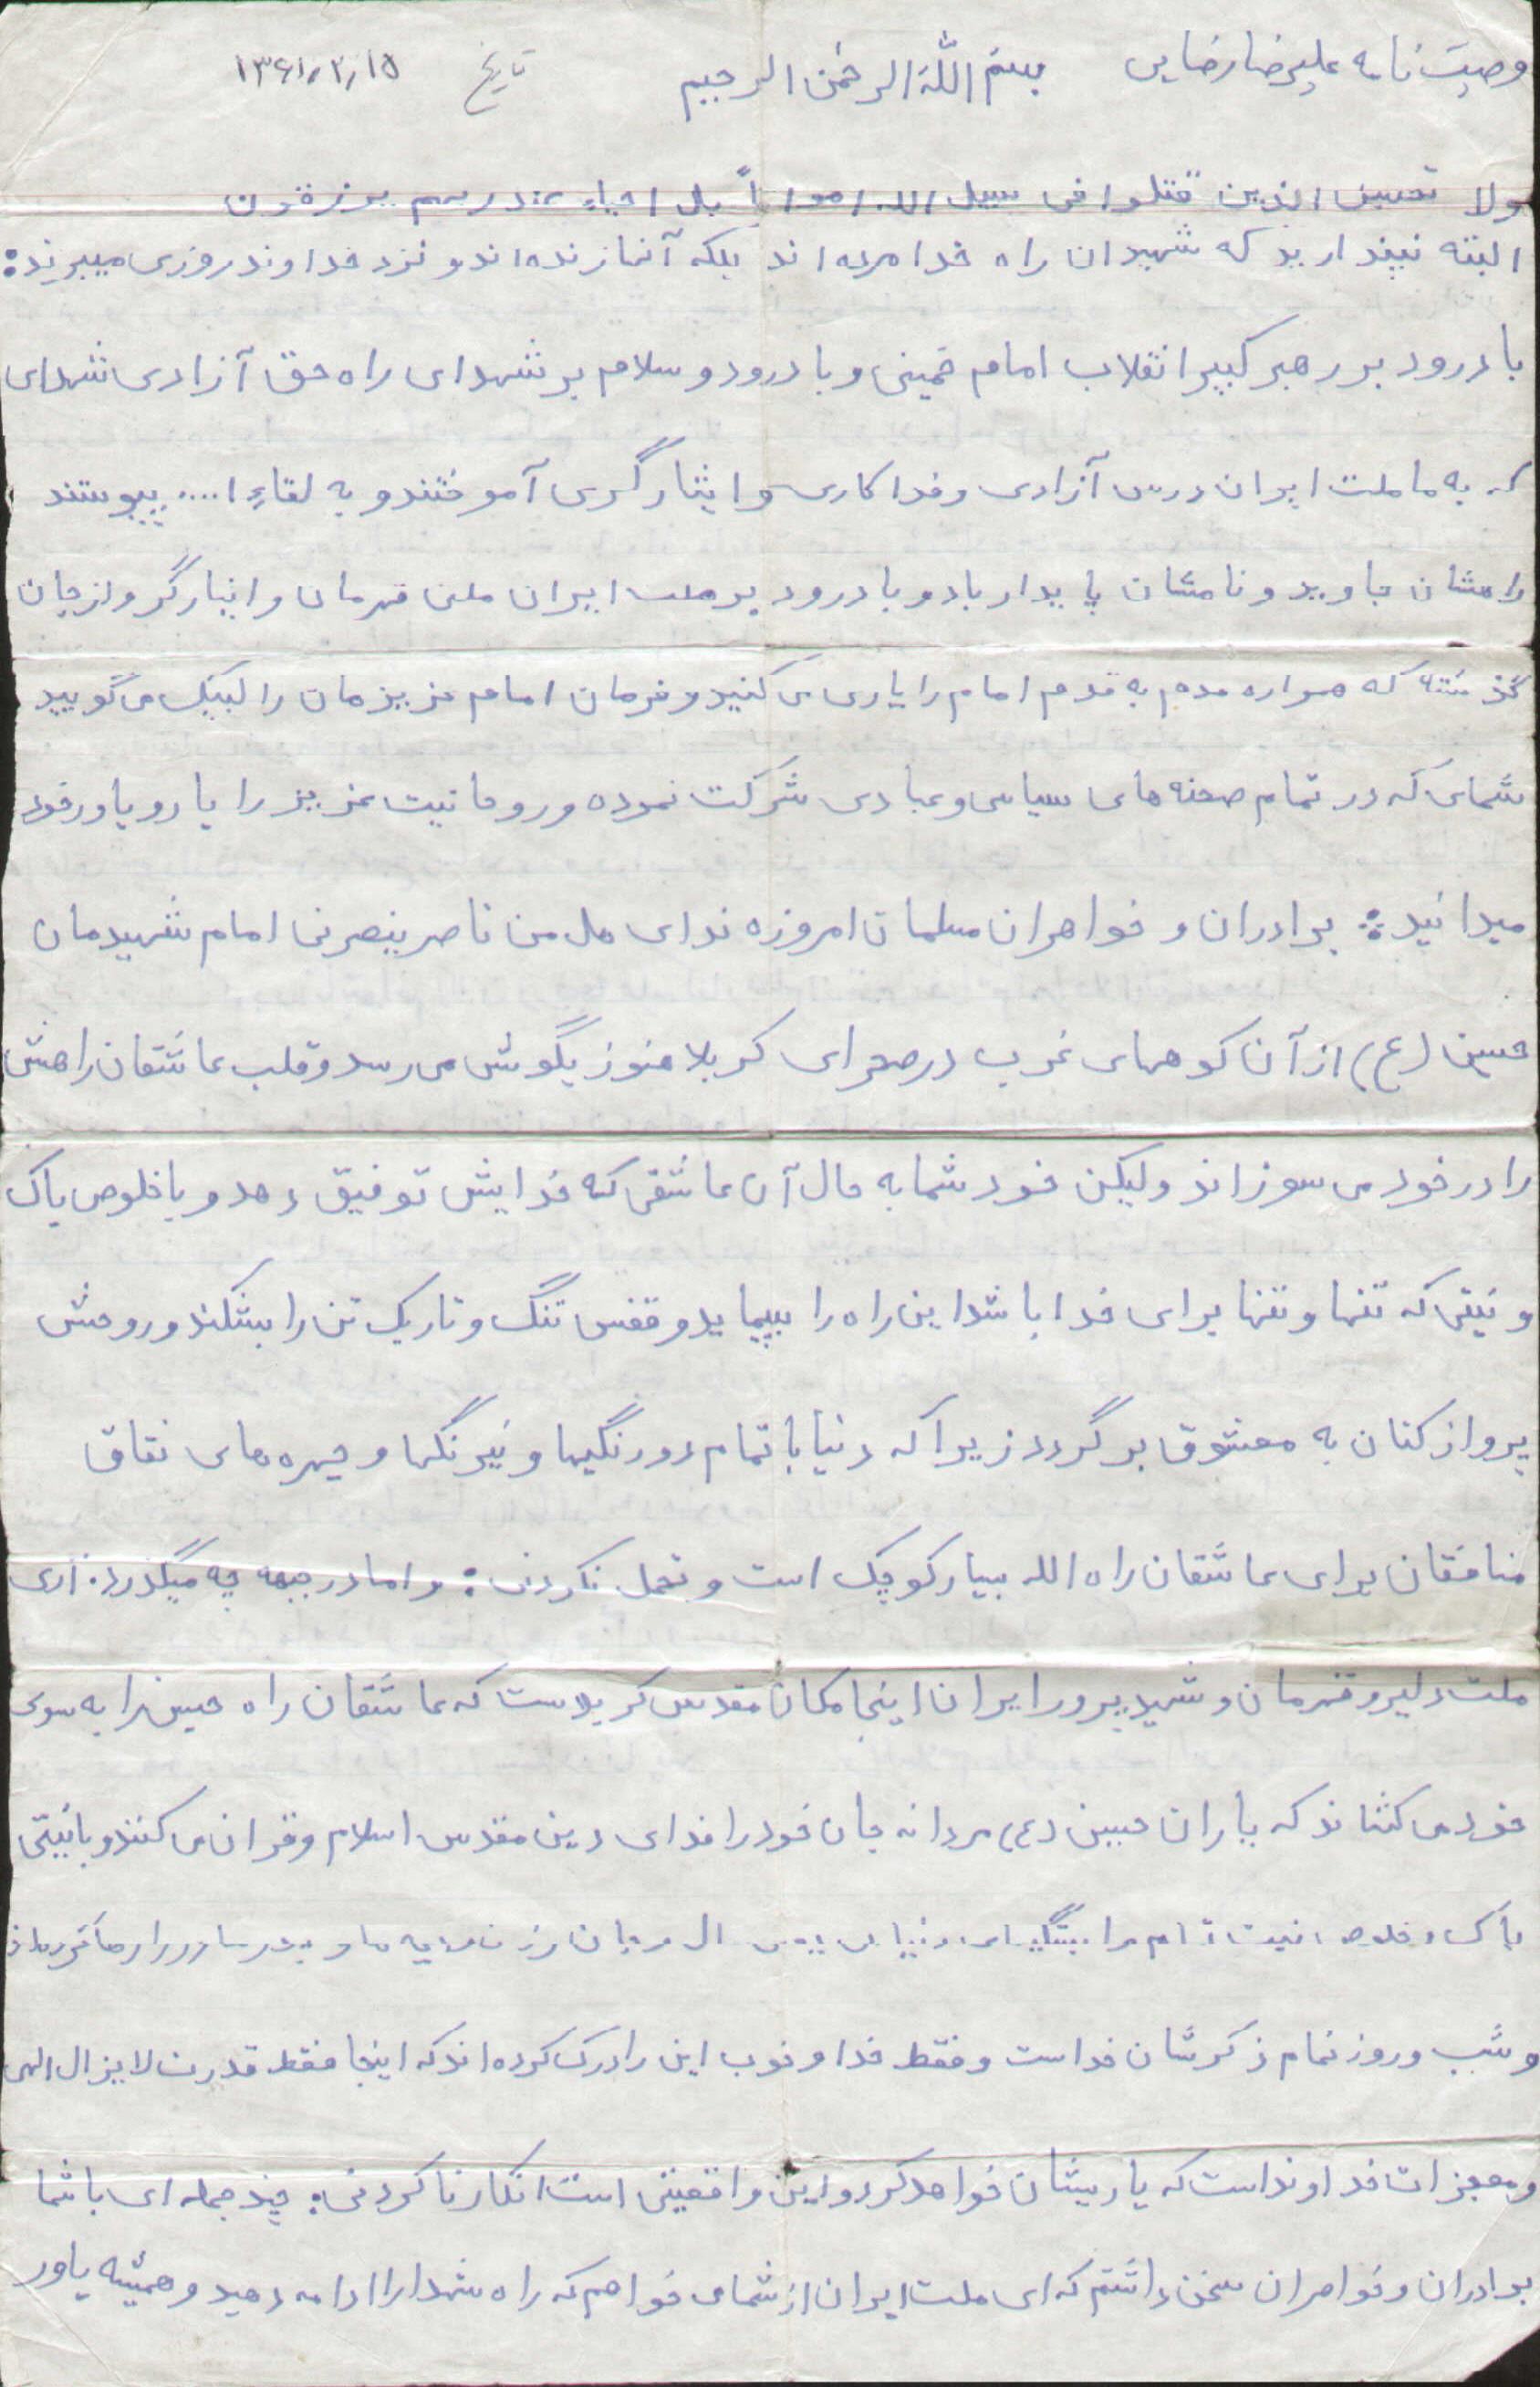 وصیت نامه علیرضا رضایی بسم اللّه الرحمن الرحیم تاریخ ۱۳۶۱/۲/۱۵
ولا تحسبن الذین قتلوا فی سبیل الله امواتاً بل احیاء عند ربهم یرزقون
البته نپندارید که شهیدان راه خدا مرده اند بلکه آنها زنده اند و نزد خداوند روزی میبرند:
با درود بر رهبر کبیر انقلاب امام خمینی و با درود و سلام بر شهدای راه حق آزادی شهدای
که به ما ملت ایران درس آزادی و فداکاری و ایثارگری آموختند و به لقاء ا.... پیوستند
راهشان جاوید و نامشان پایدار باد و با درود بر ملت ایران ملتی قهرمان و ایثارگر و از جان
گذشته که همواره قدم به قدم امام را یاری می کنید و فرمان امام عزیزمان را لبیک می گویید
شمای که در تمام صحنه های سیاسی و عبادی شرکت نموده و روحانیت عزیز را یار و یاور خود
میدانید: برادران و خواهران مسلمان امروزه ندای هل من ناصر ینصرنی امام شهیدمان
حسین (ع) از آن کوههای غرب در صحرای کربلا هنوز بگوش می رسد و قلب عاشقان راهش
را در خود می سوزاند ولیکن خود شما به حال آن عاشقی که خدایش توفیق دهد و با خلوص پاک
و نیتی که تنها و تنها برای خدا باشد این راه را بپیماید و قفس تنگ و تاریک تن را بشکند و روحش
پرواز کنان به معشوق برگردد زیرا که دنیا با تمام دورنگیها و نیرنگها و چهره های نفاق
منافقان برای عاشقان راه الله بسیار کوچک است و تحمل نکردنی: و اما در جبهه چه میگذرد. آری
ملت دلیر و قهرمان و شهید پرور ایران اینجا مکان مقدس کربلاست که عاشقان راه حسین را به سوی
خود می کشاند که یاران حسین (ع) مردانه جان خود را فدای دین مقدس اسلام و قران می کنند و با نیتی
پاک و خلوص نیت تمام
و شب و روز تمام ذکرشان خداست و فقط خدا و خوب این را درک کرده اند که اینجا فقط قدرت لایزال الهی
و معجزات خداوند است که یاریشان خواهد کرد و این واقعیتی است انکار نا کردنی: چند جمله ای با شما
برادران و خواهران سخن داشتم که ای ملت ایران از شما می خواهم که راه شهدا را ادامه دهید و همیشه یاور